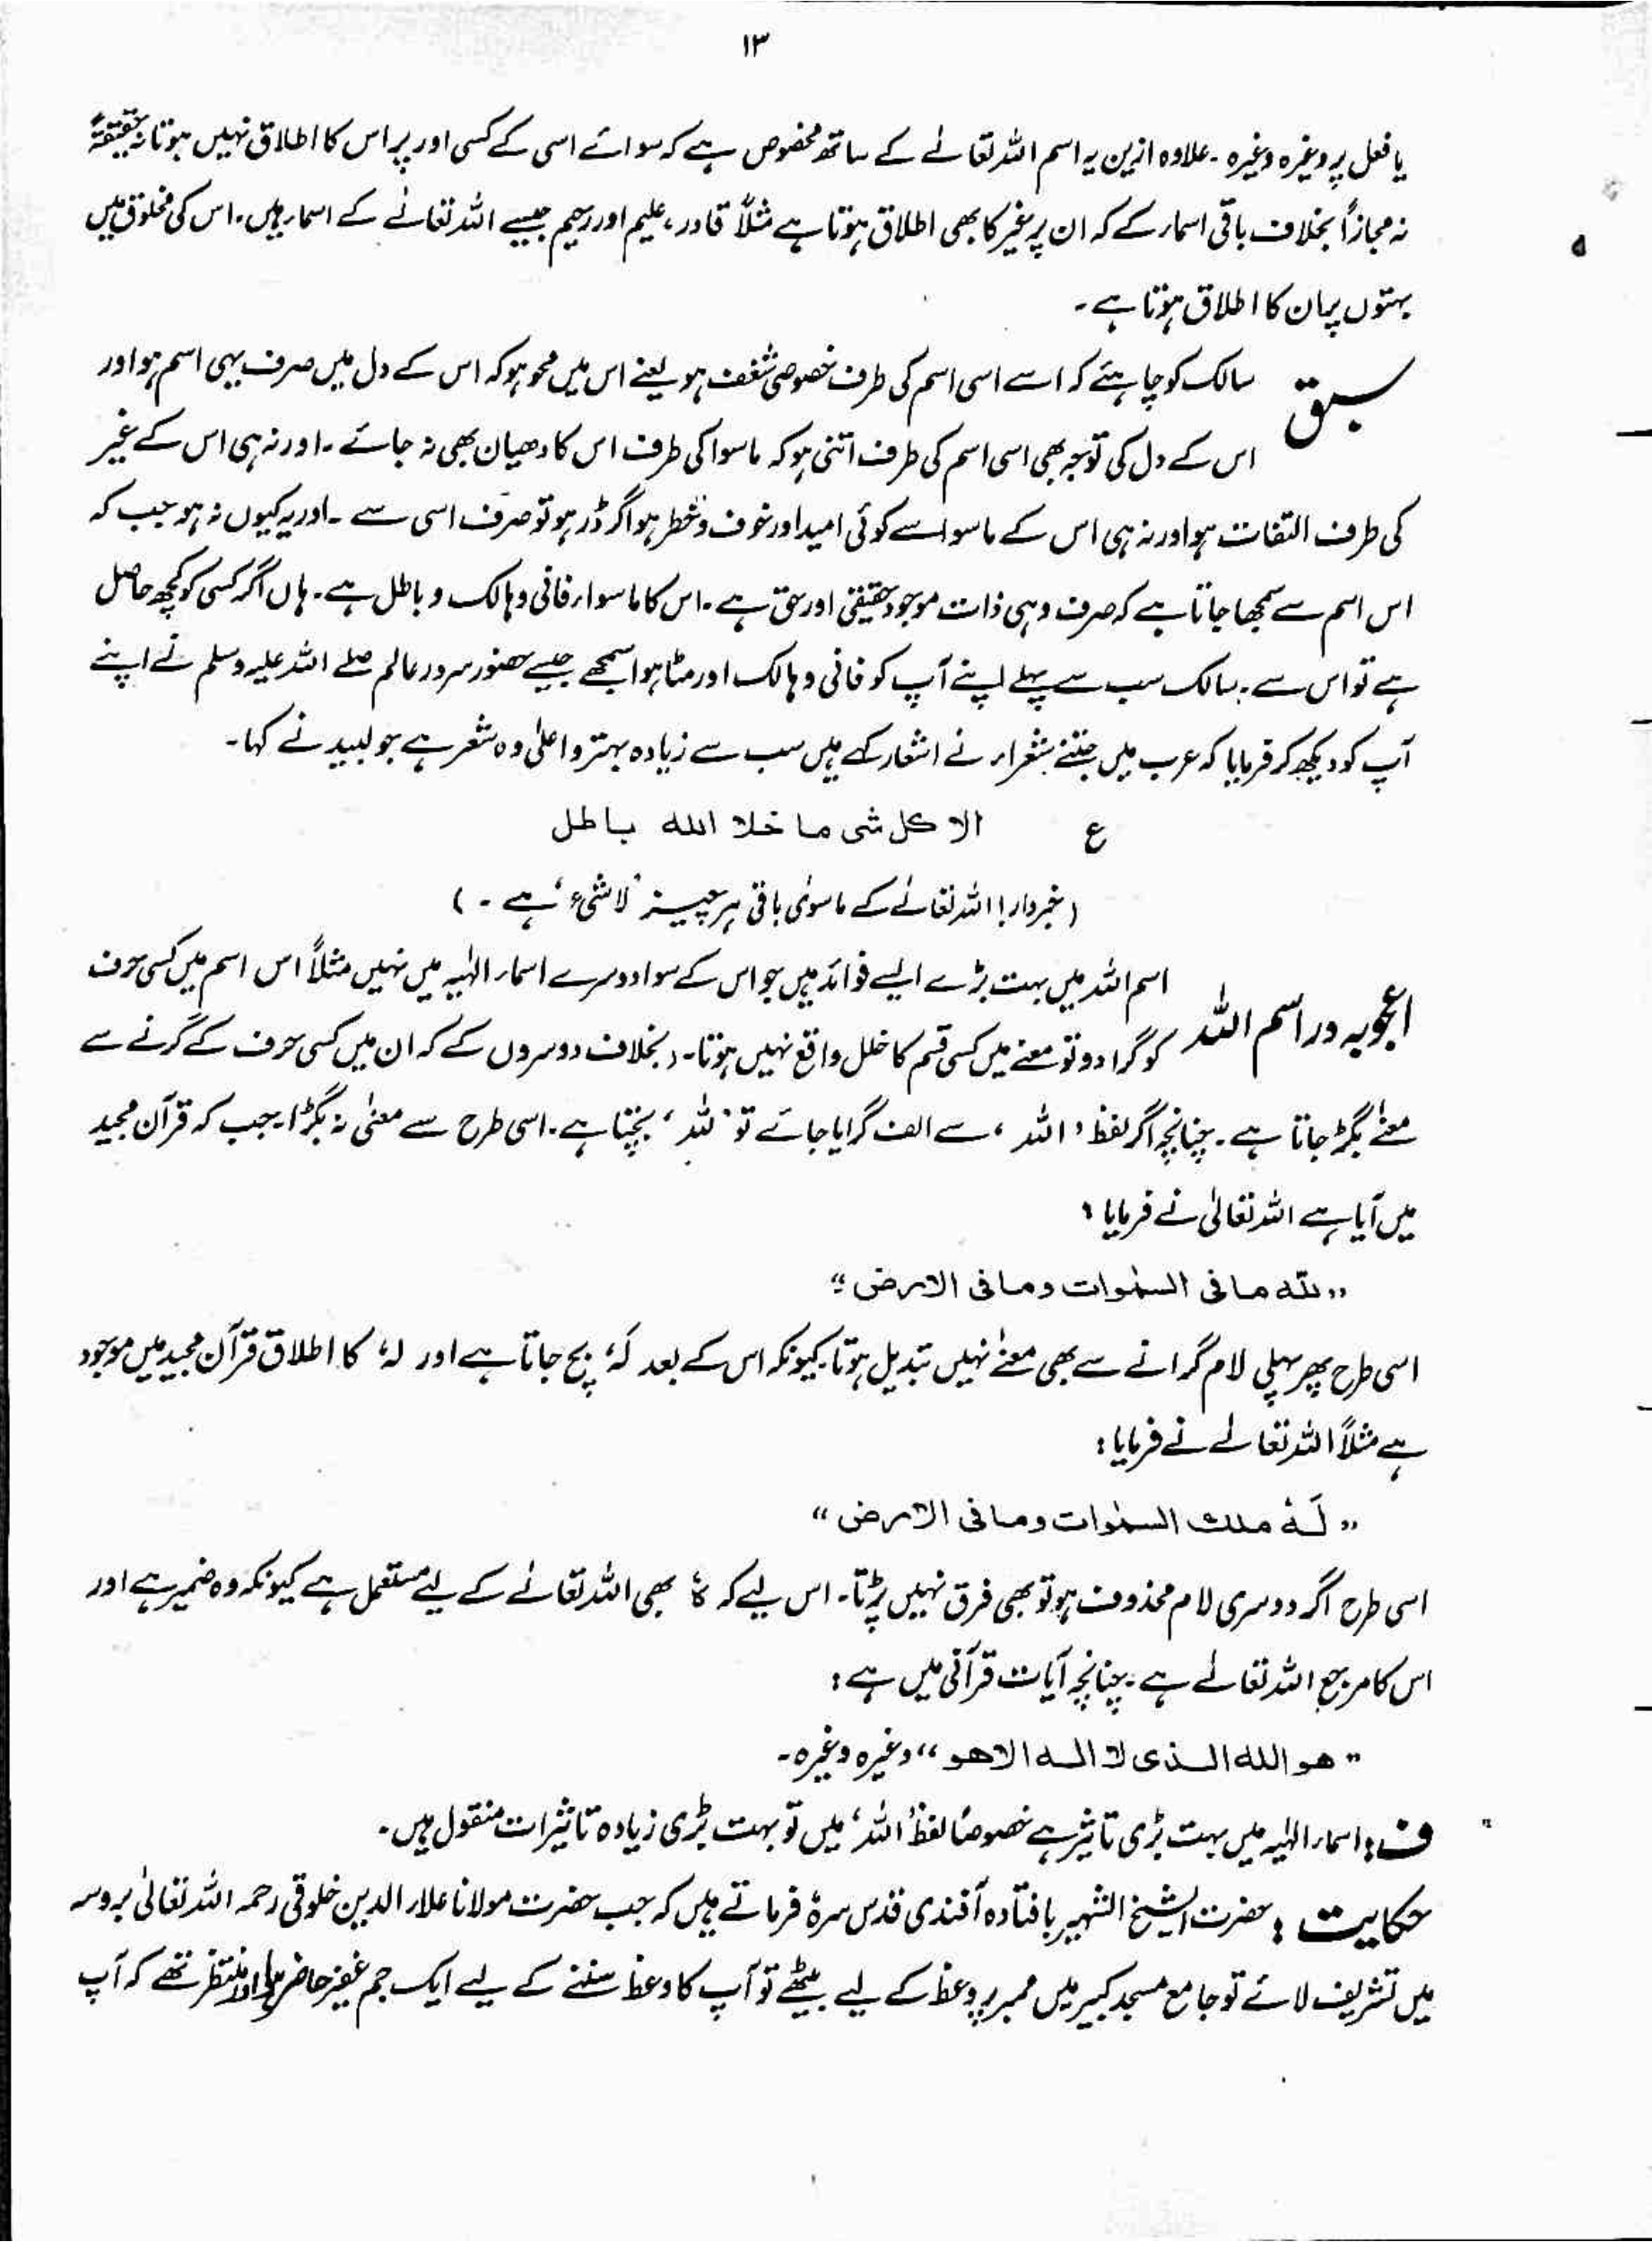 ۱۳
یا فعل پر وغیرہ وغیرہ ۔ علاوہ ازین یہ اسم اللہ تعالےٰ کے ساتھ مخصوص ہے کہ سوائے اسی کے کسی اور پر اس کا اطلاق نہیں ہوتا نہ حقیقۃً
نہ مجازاً بخلاف باقی اسماء کے کہ ان پر غیر کا بھی اطلاق ہوتا ہے مثلاً قادر، علیم اور رحیم جیسے اللہ تعالےٰ کے اسماء ہیں ۔ اس کی مخلوق میں
بہتوں پر ان کا اطلاق ہوتا ہے ۔
سبق سالک کو چاہیئے کہ اسے اسی اسم کی طرف خصوصی شغف ہو یعنے اس میں محو ہو کہ اس کے دل میں صرف یہی اسم ہو اور
اس کے دل کی توجہ بھی اسی اسم کی طرف اتنی ہو کہ ماسوا کی طرف اس کا دھیان بھی نہ جائے ۔ اور نہ ہی اس کے غیر
کی طرف التفات ہو اور نہ ہی اس کے ماسوا سے کوئی امید اور خوف و خطر ہو اگر ڈر ہو تو صرف اسی سے ۔ اور یہ کیوں نہ ہو جب کہ
اس اسم سے سمجھا جاتا ہے کہ صرف وہی ذات موجود حقیقی اور حق ہے ۔ اس کا ماسواء فانی و ہالک و باطل ہے ۔ ہاں اگر کسی کو کچھ حاصل
ہے تو اس سے ۔ سالک سب سے پہلے اپنے آپ کو فانی و ہالک اور مٹا ہوا سمجھے جیسے حضور سرور عالم صلے اللہ علیہ وسلم نے اپنے
آپ کو دیکھ کر فرمایا کہ عرب میں جتنے شعراء نے اشعار کہے ہیں سب سے زیادہ بہتر و اعلیٰ وہ شعر ہے جو لبید نے کہا ۔
ع الا کل شی ما خلا اللہ باطل
(خبردار! اللہ تعالےٰ کے ماسوٰی باقی ہر چیز 'لا شیء' ہے ۔ )
اعجوبہ در اسم اللہ اسم اللہ میں بہت بڑے ایسے فوائد ہیں جو اس کے سوا دوسرے اسماء الٰہیہ میں نہیں مثلاً اس اسم میں کسی حرف
کو گرا دو تو معنے میں کسی قسم کا خلل واقع نہیں ہوتا ۔ بخلاف دوسروں کے کہ ان میں کسی حرف کے گرنے سے
معنےٰ بگڑ جاتا ہے ۔ چنانچہ اگر لفظ 'اللہ' سے الف گرایا جائے تو 'للہ' بچتا ہے ۔ اسی طرح سے معنٰی نہ بگڑا ۔ جب کہ قرآن مجید
میں آیا ہے اللہ تعالیٰ نے فرمایا :
"للّٰہ ما فی السمٰوات وما فی الارض"
اسی طرح پھر پہلی لام گرانے سے بھی معنےٰ نہیں تبدیل ہوتا ۔ کیونکہ اس کے بعد 'لہ' بچ جاتا ہے اور 'لہ' کا اطلاق قرآن مجید میں موجود
ہے مثلاً اللہ تعالےٰ نے فرمایا :
"لَہٗ ملک السمٰوات وما فی الارض"
اسی طرح اگر دوسری لام محذوف ہو تو بھی فرق نہیں پڑتا ۔ اس لیے کہ 'ہٗ' بھی اللہ تعالےٰ کے لیے مستعمل ہے کیونکہ وہ ضمیر ہے اور
اس کا مرجع اللہ تعالےٰ ہے ۔ چنانچہ آیات قرآنی میں ہے :
"ھو اللہ الذی لا الہ الا ھو" وغیرہ وغیرہ ۔
ف : اسماء الٰہیہ میں بہت بڑی تاثیر ہے خصوصاً لفظ 'اللہ' میں تو بہت بڑی زیادہ تاثیرات منقول ہیں ۔
حکایت : حضرت الشیخ الشہیر بافتادہ آفندی قدس سرہٗ فرماتے ہیں کہ جب حضرت مولانا علاء الدین خلوتی رحمہ اللہ تعالیٰ بروسہ
میں تشریف لائے تو جامع مسجد کبیر میں ممبر پر وعظ کے لیے بیٹھے تو آپ کا وعظ سننے کے لیے ایک جم غفیر حاضر ہوا اور منتظر تھے کہ آپ